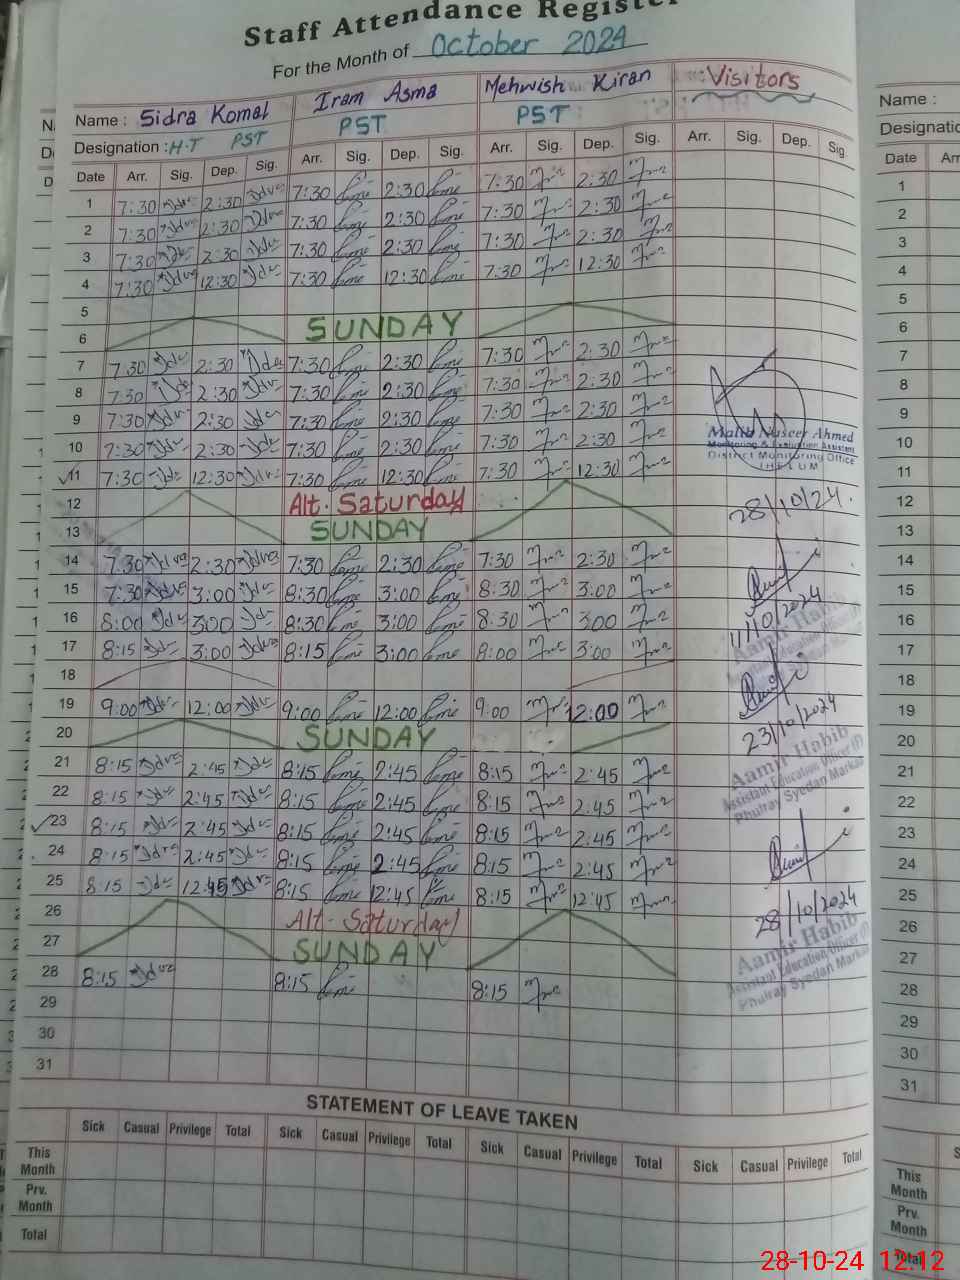 Staff Attendance Register
For the Month of October 2024
Name : Sidra Komal Iram Asma Mehwish Kiran Visitors
Designation : H.T PST PST PST
Date Arr. Sig. Dep. Sig. Arr. Sig. Dep. Sig. Arr. Sig. Dep. Sig. Arr. Sig. Dep. Sig.
1 7:30 2:30 7:30 2:30 7:30 2:30
2 7:30 2:30 7:30 2:30 7:30 2:30
3 7:30 2:30 7:30 2:30 7:30 2:30
4 7:30 12:30 7:30 12:30 7:30 12:30
5
6 SUNDAY
7 7:30 2:30 7:30 2:30 7:30 2:30
8 7:30 2:30 7:30 2:30 7:30 2:30
9 7:30 2:30 7:30 2:30 7:30 2:30
10 7:30 2:30 7:30 2:30 7:30 2:30
11 7:30 12:30 7:30 12:30 7:30 12:30
12 Alt. Saturday
13 SUNDAY
14 7:30 2:30 7:30 2:30 7:30 2:30
15 7:30 3:00 8:30 3:00 8:30 3:00
16 8:00 3:00 8:30 3:00 8:30 3:00
17 8:15 3:00 8:15 3:00 8:00 3:00
18
19 9:00 12:00 9:00 12:00 9:00 12:00
20 SUNDAY
21 8:15 2:45 8:15 2:45 8:15 2:45
22 8:15 2:45 8:15 2:45 8:15 2:45
23 8:15 2:45 8:15 2:45 8:15 2:45
24 8:15 2:45 8:15 2:45 8:15 2:45
25 8:15 12:45 8:15 12:45 8:15 12:45
26 Alt- Saturday
27 SUNDAY
28 8:15 8:15 8:15
29
30
31
Naseer Ahmed
Monitoring & Evaluation Assistant
District Monitoring Office
JHELUM
28/10/24.
11/10/2024
Aamir Habib
Assistant Education Officer
23/10/2024
Aamir Habib
Assistant Education Officer (F)
Phulray Syedan Markaz
28/10/2024
Aamir Habib
Assistant Education Officer (F)
Phulray Syedan Markaz
STATEMENT OF LEAVE TAKEN
Sick Casual Privilege Total Sick Casual Privilege Total Sick Casual Privilege Total Sick Casual Privilege Total
This Month
Prv. Month
Total
Name :
Date
1
2
3
4
5
6
7
8
9
10
11
12
13
14
15
16
17
18
19
20
21
22
23
24
25
26
27
28
29
30
31
This Month
Prv. Month
Total
28-10-24 12:12